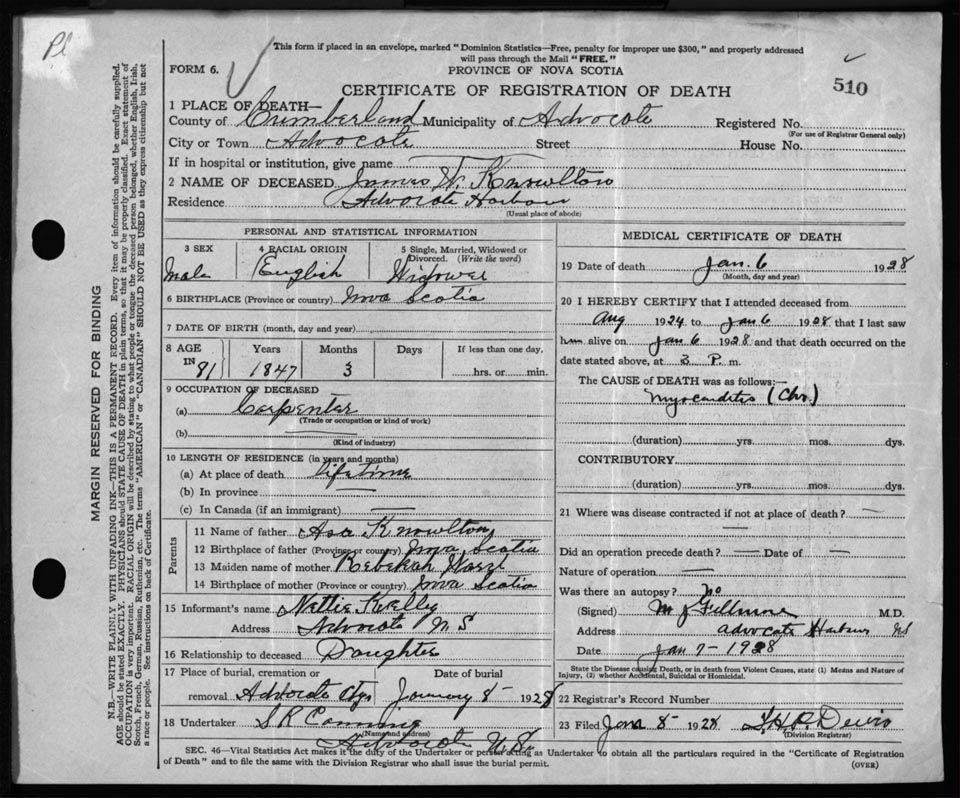 Pl
This form if placed in an envelope, marked "Dominion Statistics—Free, penalty for improper use $300," and properly addressed
will pass through the Mail "FREE."
FORM 6. PROVINCE OF NOVA SCOTIA
510
CERTIFICATE OF REGISTRATION OF DEATH
1 PLACE OF DEATH—
County of Cumberland Municipality of Advocate Registered No.
(For use of Registrar General only)
City or Town Advocate Street House No.
If in hospital or institution, give name
2 NAME OF DECEASED James W. Knowlton
Residence Advocate Harbour
(Usual place of abode)
PERSONAL AND STATISTICAL INFORMATION
3 SEX 4 RACIAL ORIGIN 5 Single, Married, Widowed or
Divorced. (Write the word)
Male English Widower
6 BIRTHPLACE (Province or country) Nova Scotia
7 DATE OF BIRTH (month, day and year)
8 AGE Years Months Days If less than one day,
IN 81 1847 3 hrs. or min.
9 OCCUPATION OF DECEASED
(a) Carpenter
(Trade or occupation or kind of work)
(b)
(Kind of industry)
10 LENGTH OF RESIDENCE (in years and months)
(a) At place of death lifetime
(b) In province —
(c) In Canada (if an immigrant) —
Parents
11 Name of father Asa Knowlton
12 Birthplace of father (Province or country) Nova Scotia
13 Maiden name of mother Rebekah
14 Birthplace of mother (Province or country) Nova Scotia
15 Informant's name Nettie Kelley
Address Advocate N S
16 Relationship to deceased Daughter
17 Place of burial, cremation or Date of burial
removal Advocate January 8 - 1928
18 Undertaker S R
(Name and address)
Advocate N.S.
MEDICAL CERTIFICATE OF DEATH
19 Date of death Jan. 6 1928
(Month, day and year)
20 I HEREBY CERTIFY that I attended deceased from
Aug 1924 to Jan 6 1928 that I last saw
him alive on Jan 6 1928 and that death occurred on the
date stated above, at 3 P. m.
The CAUSE OF DEATH was as follows:—
Myocarditis (Chr.)
(duration) yrs. mos. dys.
CONTRIBUTORY
(duration) yrs. mos. dys.
21 Where was disease contracted if not at place of death? —
—
Did an operation precede death? — Date of —
Nature of operation —
Was there an autopsy? no
(Signed) M J Fillmore M.D.
Address Advocate Harbour NS
Date Jan 7 - 1928
State the Disease causing Death, or in death from Violent Causes, state (1) Means and Nature of
Injury, (2) whether Accidental, Suicidal or Homicidal.
22 Registrar's Record Number
23 Filed Jan 8 - 1928
(Division Registrar)
SEC. 46—Vital Statistics Act makes it the duty of the Undertaker or person acting as Undertaker to obtain all the particulars required in the "Certificate of Registration
of Death" and to file the same with the Division Registrar who shall issue the burial permit.
(OVER)
MARGIN RESERVED FOR BINDING
N.B.—WRITE PLAINLY WITH UNFADING INK—THIS IS A PERMANENT RECORD. Every item of information should be carefully supplied.
AGE should be stated EXACTLY. PHYSICIANS should STATE CAUSE OF DEATH in plain terms, so that it may be properly classified. Exact statement of
OCCUPATION is very important. RACIAL ORIGIN will be described by stating to what people or tongue the deceased person belonged, whether English, Irish,
Scotch, French, German, Russian, Ruthenian, etc. The terms "AMERICAN" or "CANADIAN" SHOULD NOT BE USED as they express citizenship but not
a race or people. See instructions on back of Certificate.